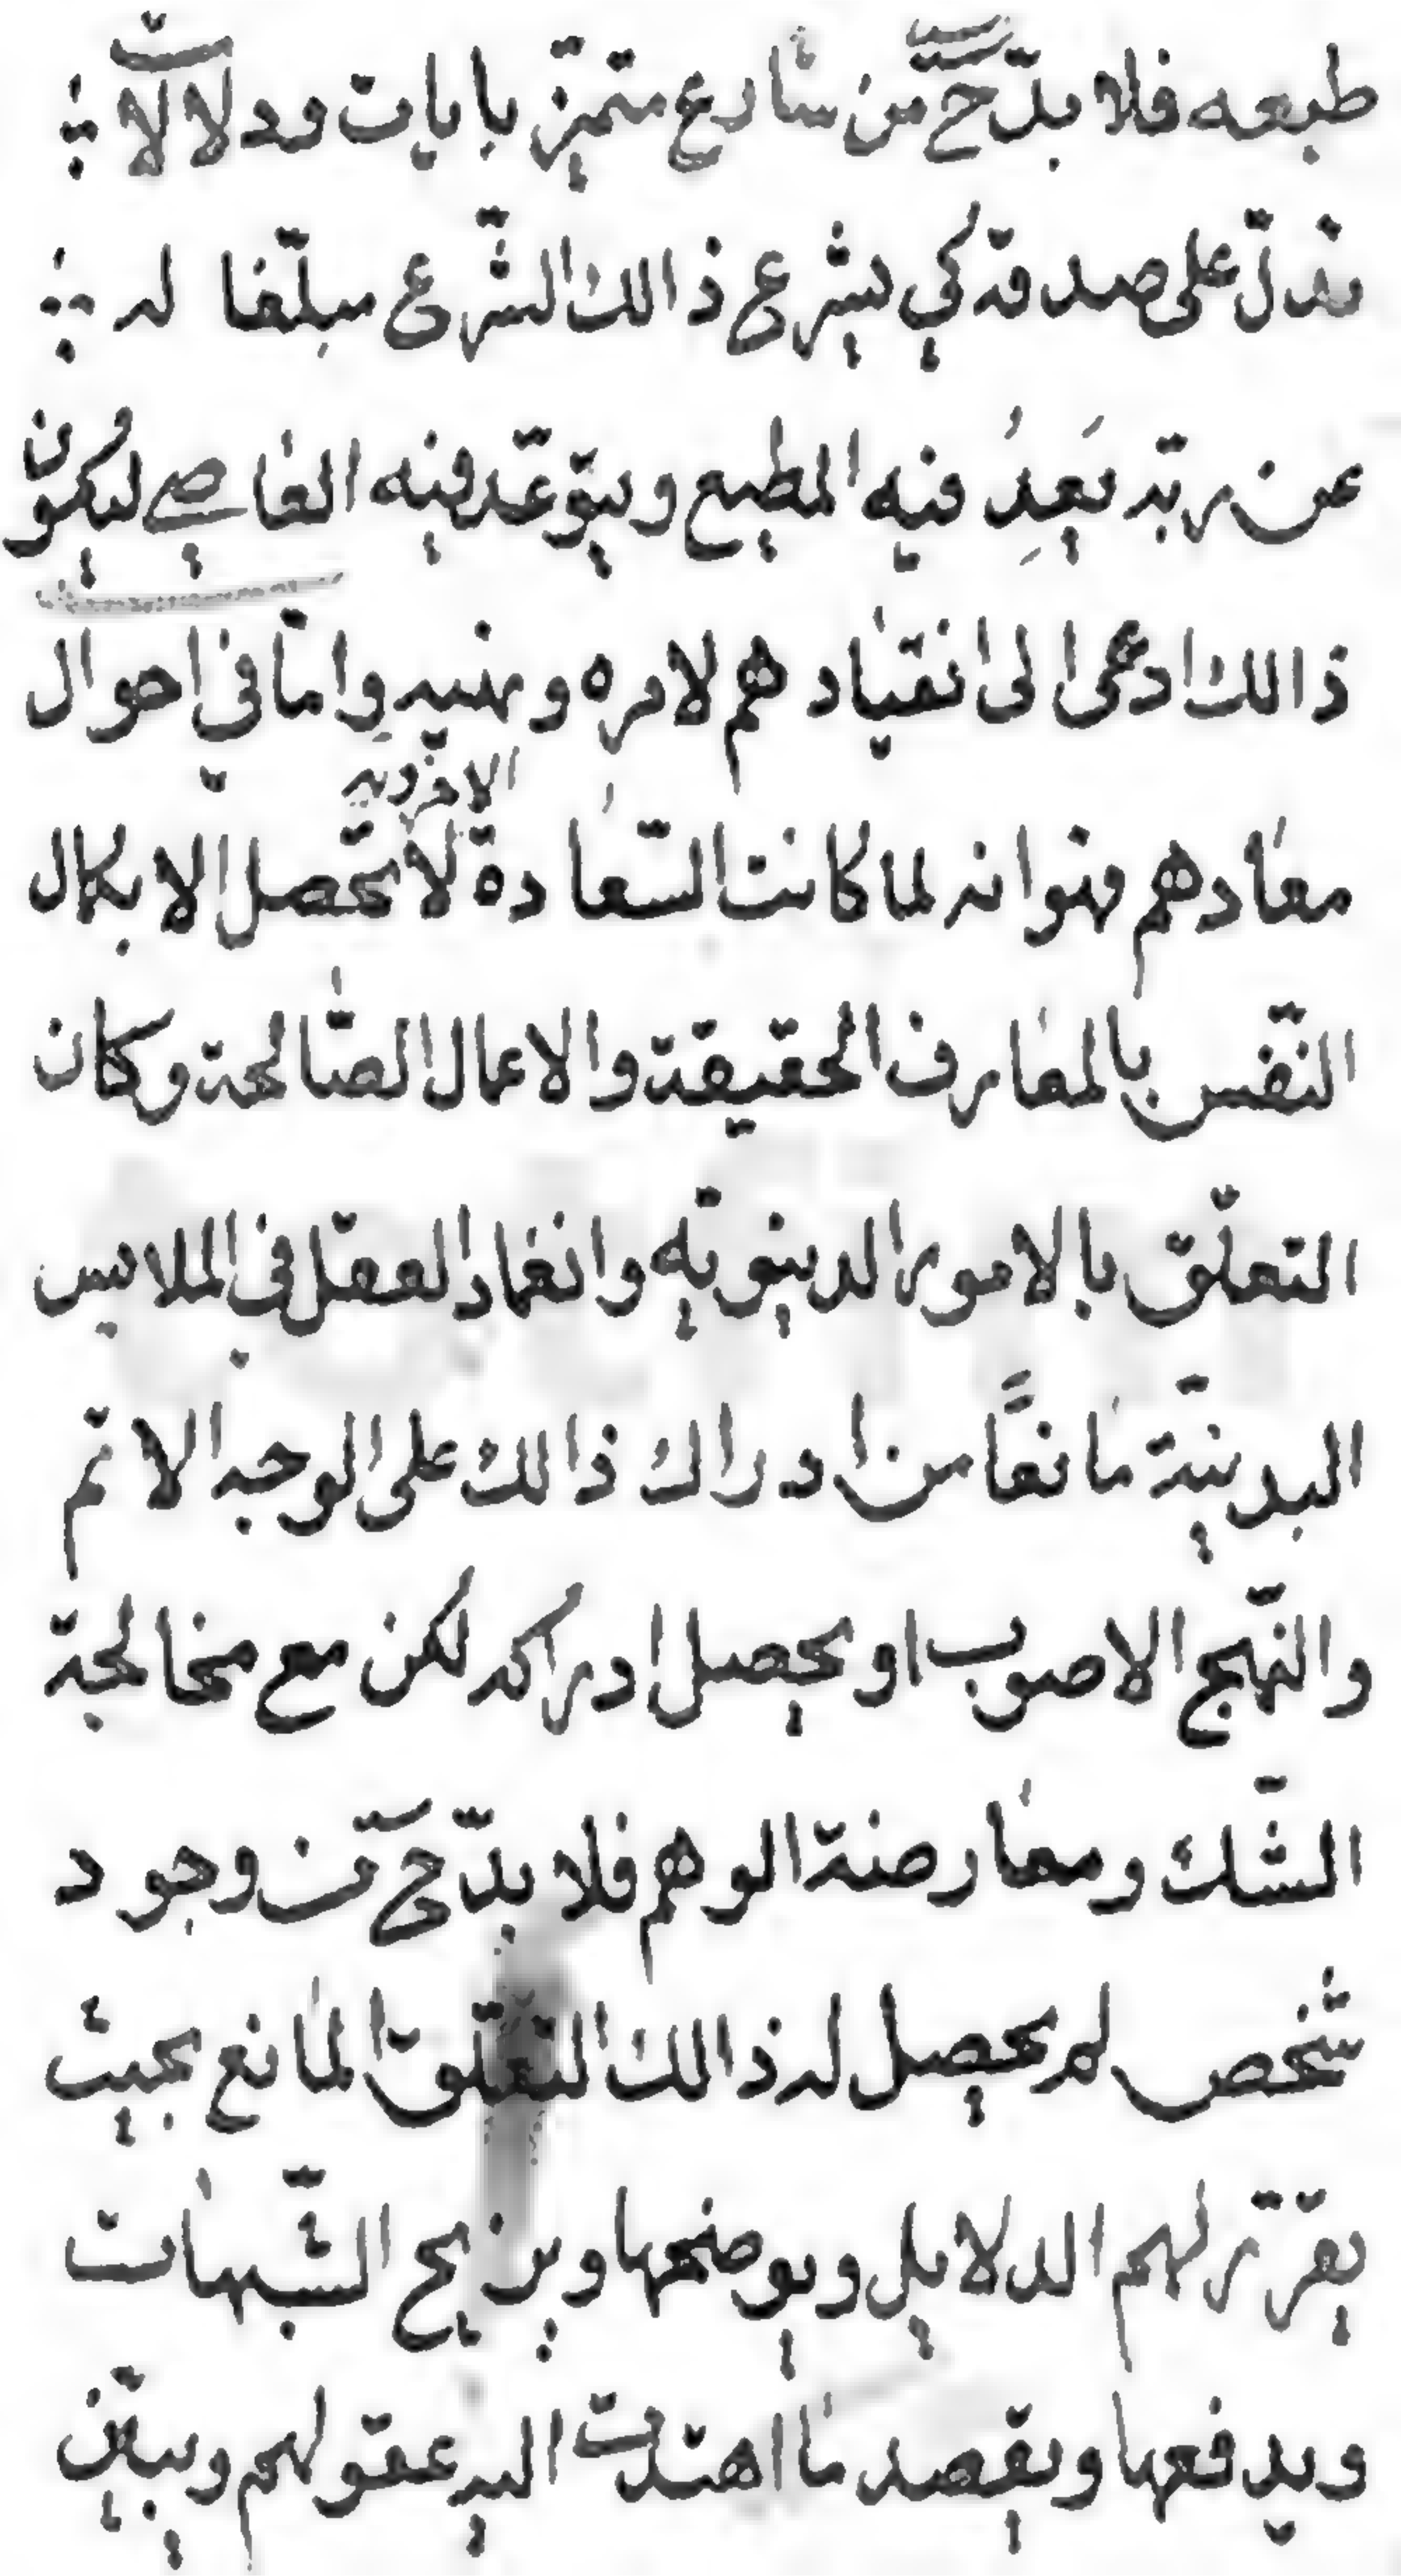 طبعه فلا بدّ ح من شارع متميّز بايات ودلالات
تدلّ على صدقه كي يشرع ذالك الشّرع مبلّغا له
عن ربّه يَعِدُ فيه المطيع ويتوّعد فيه العاصي ليكون
ذالك ادعى الى انقياد هم لامره ونهيه وامّا في احوال
معادهم فهو انه لما كانت السّعادة الاخرويه لا تحصل الا بكمال
النّفس بالمعارف الحقيقة والاعمال الصّالحة وكان
التعلّق بالامور الدينويّه وانغماد العقل في الملابس
البدينيّة مانعاً من ادراك ذالك على الوجه الاتم
والنّهج الاصوب او يحصل ادراكه لكن مع مخالجة
الشّك ومعارضة الوهم فلا بدّ ح من وجود
شخص لم يحصل له ذالك التعلّق المانع بحيث
يقرّر لهم الدلايل ويوضحها ويزيح الشّبهات
ويدفعها ويقصد ما اهتدت اليه عقولهم ويبيّن